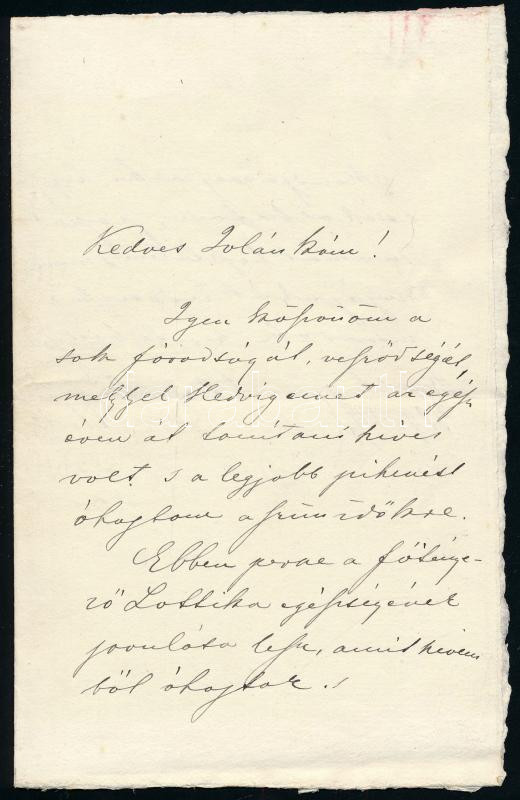 Kedves Jolánkám!
Igen köszönöm a
sok fáradságát, vesződségét,
mellyel Hedvigemet az egész
éven át tanítani szíves
volt s a legjobb pihenést
óhajtom a szünidőkre.
Ebben persze a főténye-
ző Lottika egészségének
javulása lesz, amit szívem
ből óhajtok. s